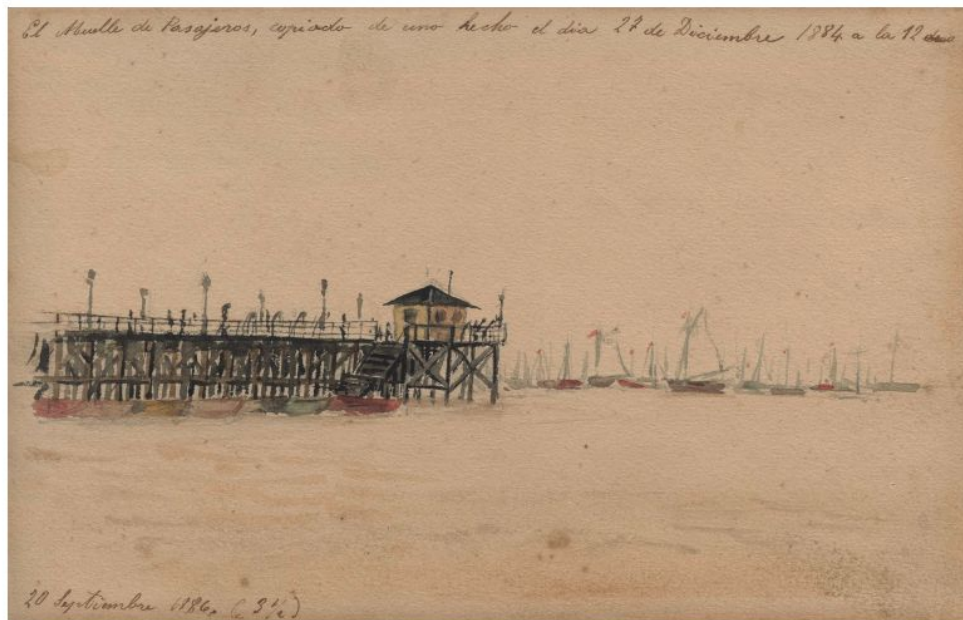 El Muelle de Pasajeros, copiado de uno hecho el dia 27 de Diciembre 1884 a la 12
20 Septiembre 1886. ( 3 ½ )